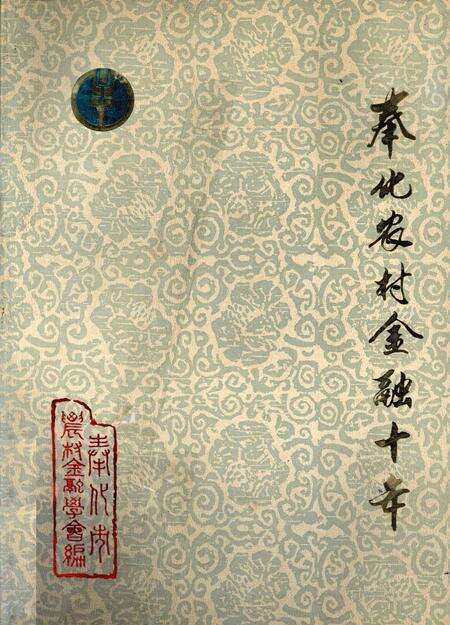 奉化农村金融十年
奉化市
農村金融學會編